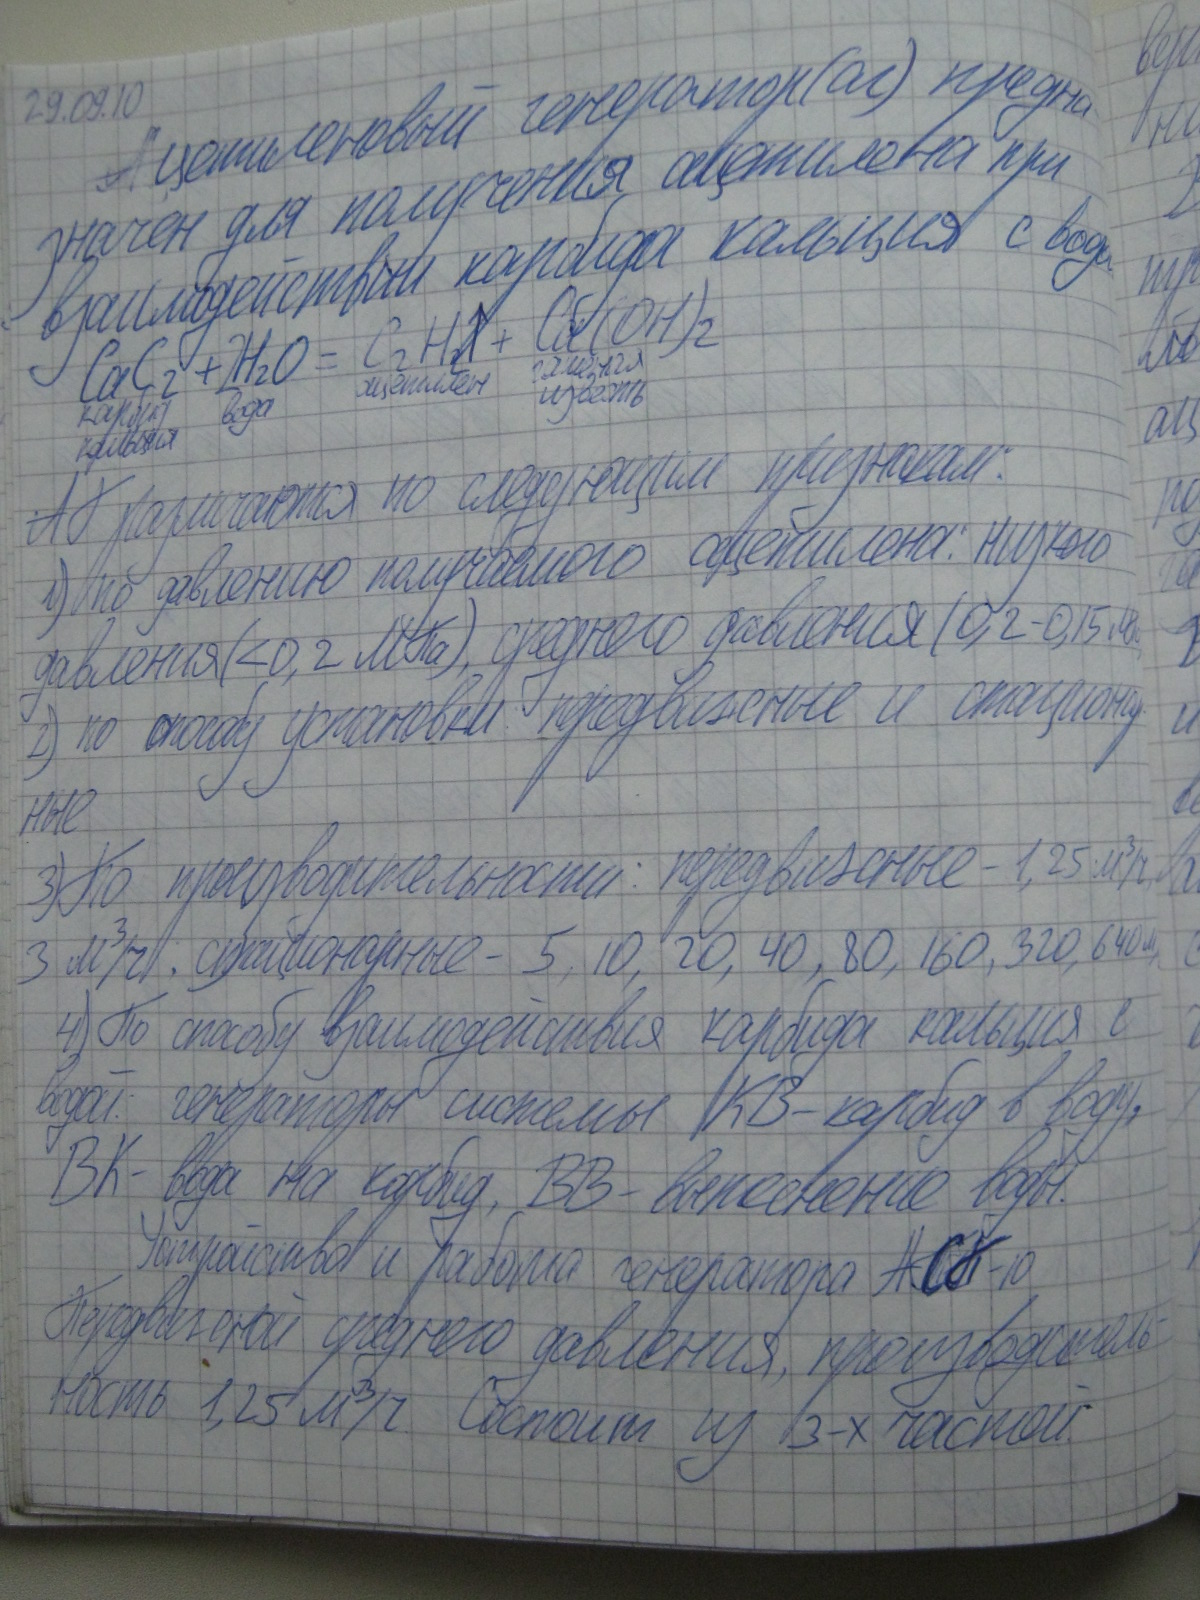 29.09.10
Ацетиленовый генератор(аг) предна
значен для получения ацетилена при
взаимодействии карбида кальция с вода
CaC2 + 2H2O = C2H2 + Ca(OH)2
карбид вода ацетилен гашёная
кальция известь
АГ различаются по следующим признакам:
1) по давлению получаемого ацетилена: низкого
давления(<0,2 МПа), среднего давления (0,2-0,15 МПа
2) по способу установки передвижные и стациона
ные
3) По производительности: передвижные - 1,25 м³/ч,
3 м³/ч; стационарные - 5, 10, 20, 40, 80, 160, 320, 640 м
4) По способу взаимодействия карбида кальция с
водой: генераторы системы КВ - карбид в воду,
ВК - вода на карбид, ВВ - вытеснение воды.
Устройство и работа генератора -10
Передвижной среднего давления, производитель-
ность 1,25 м³/ч. Состоит из 3-х частей: